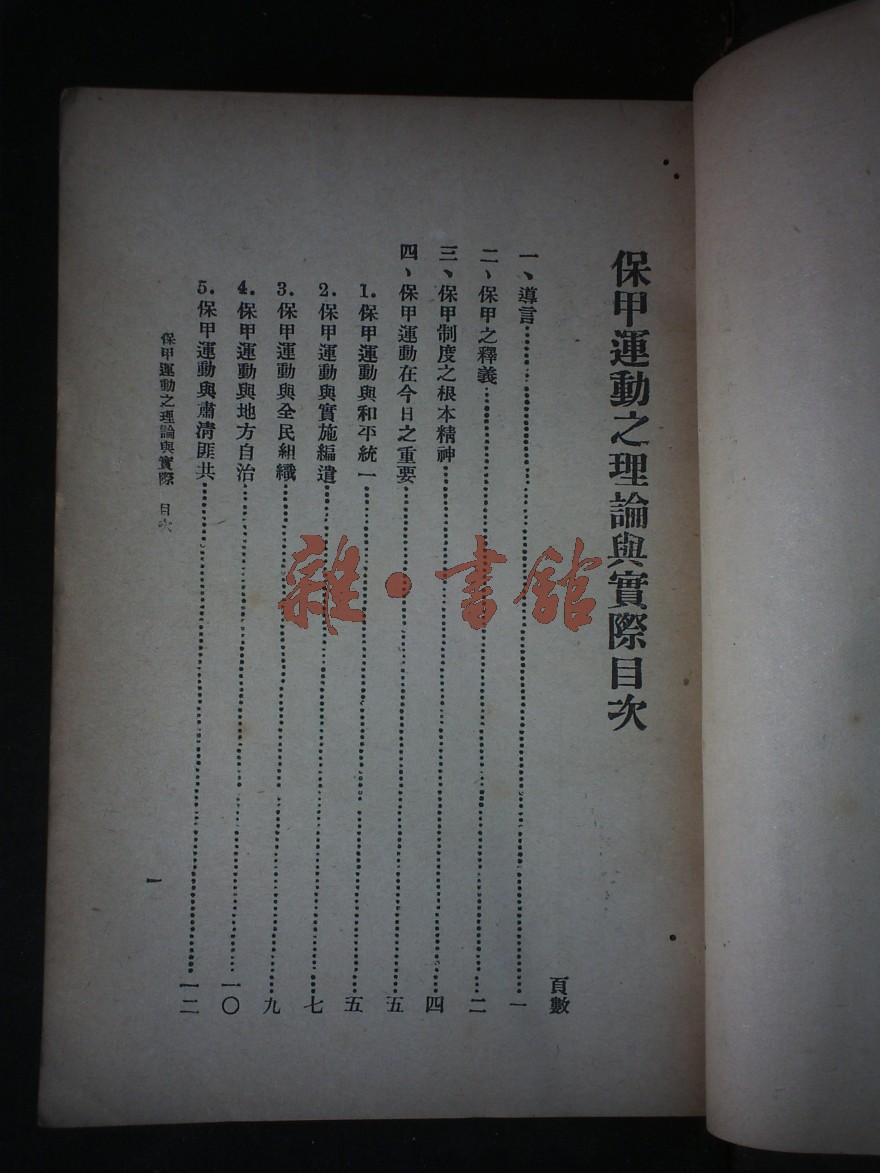 保甲運動之理論與實際目次
頁數
一、導言……一
二、保甲之釋義……二
三、保甲制度之根本精神……四
四、保甲運動在今日之重要……五
1.保甲運動與和平統一……五
2.保甲運動與實施編遣……七
3.保甲運動與全民組織……九
4.保甲運動與地方自治……一〇
5.保甲運動與肅清匪共……一二
保甲運動之理論與實際 目次
一
雜·書館